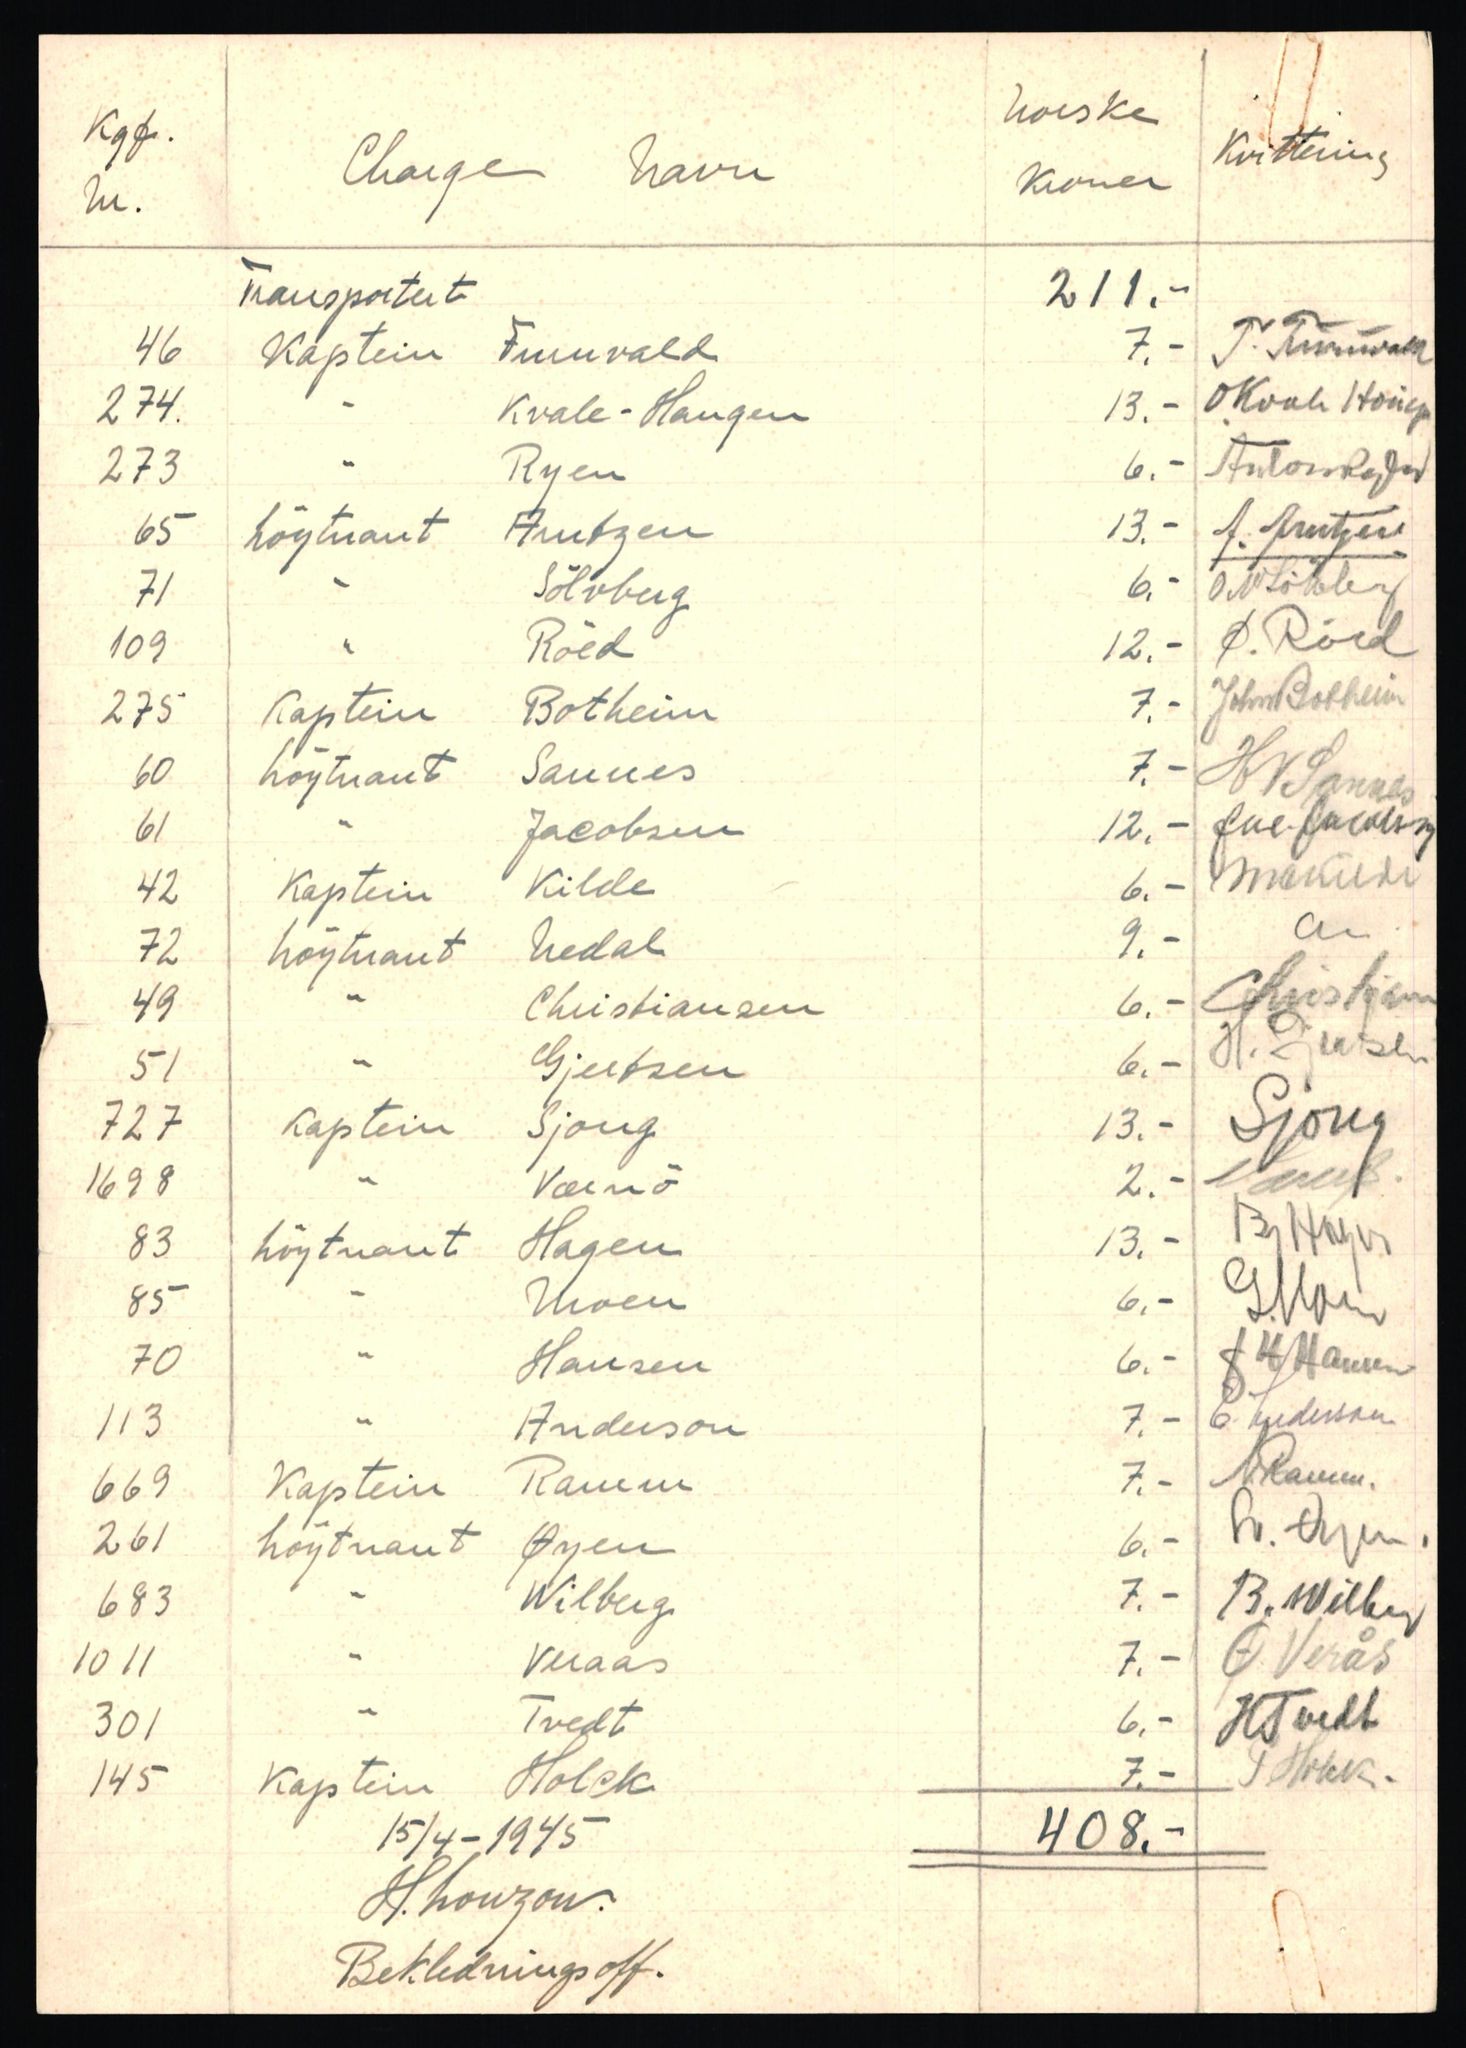 Kgf. Nr. Charge Navn Norske Kroner Kvittering
Transportert 211.-
46 Kaptein Furuvald 7.- T. Furuvald
274. " Kvale-Haugen 13.- O Kvale Haugen
273 " Ryen 6.- Anton Ryen
65 Löytnant Arntzen 13.- A. Arntzen
71 " Sölvberg 6.- Sölvberg
109 " Röed 12.- Ø. Röed
275 Kaptein Botheim 7.- John Botheim
60 Löytnant Sannes 7.- H V Sannes
61 " Jacobsen 12.- Jacobsen
42 Kaptein Kilde 6.- Kilde
72 Löytnant Nedal 9.-
49 " Christiansen 6.- Christiansen
51 " Gjertsen 6.- H. Gjertsen
727 Kaptein Sjong 13.- Sjong
1698 " Værnö 2.-
83 Löytnant Hagen 13.- Hagen
85 " Moen 6.- G. Moen
70 " Hansen 6.- H Hansen
113 " Anderson 7.- E. Anderson
669 Kaptein Ramm 7.- N Ramm.
261 Löytnant Øyen 6.- Øyen.
683 " Wilberg 7.- B. Wilberg
1011 " Veraas 7.- O Verås
301 " Tvedt 6.- H Tvedt
145 Kaptein Holck 7.- Holck.
15/4-1945 408.-
Bekledningsoff.